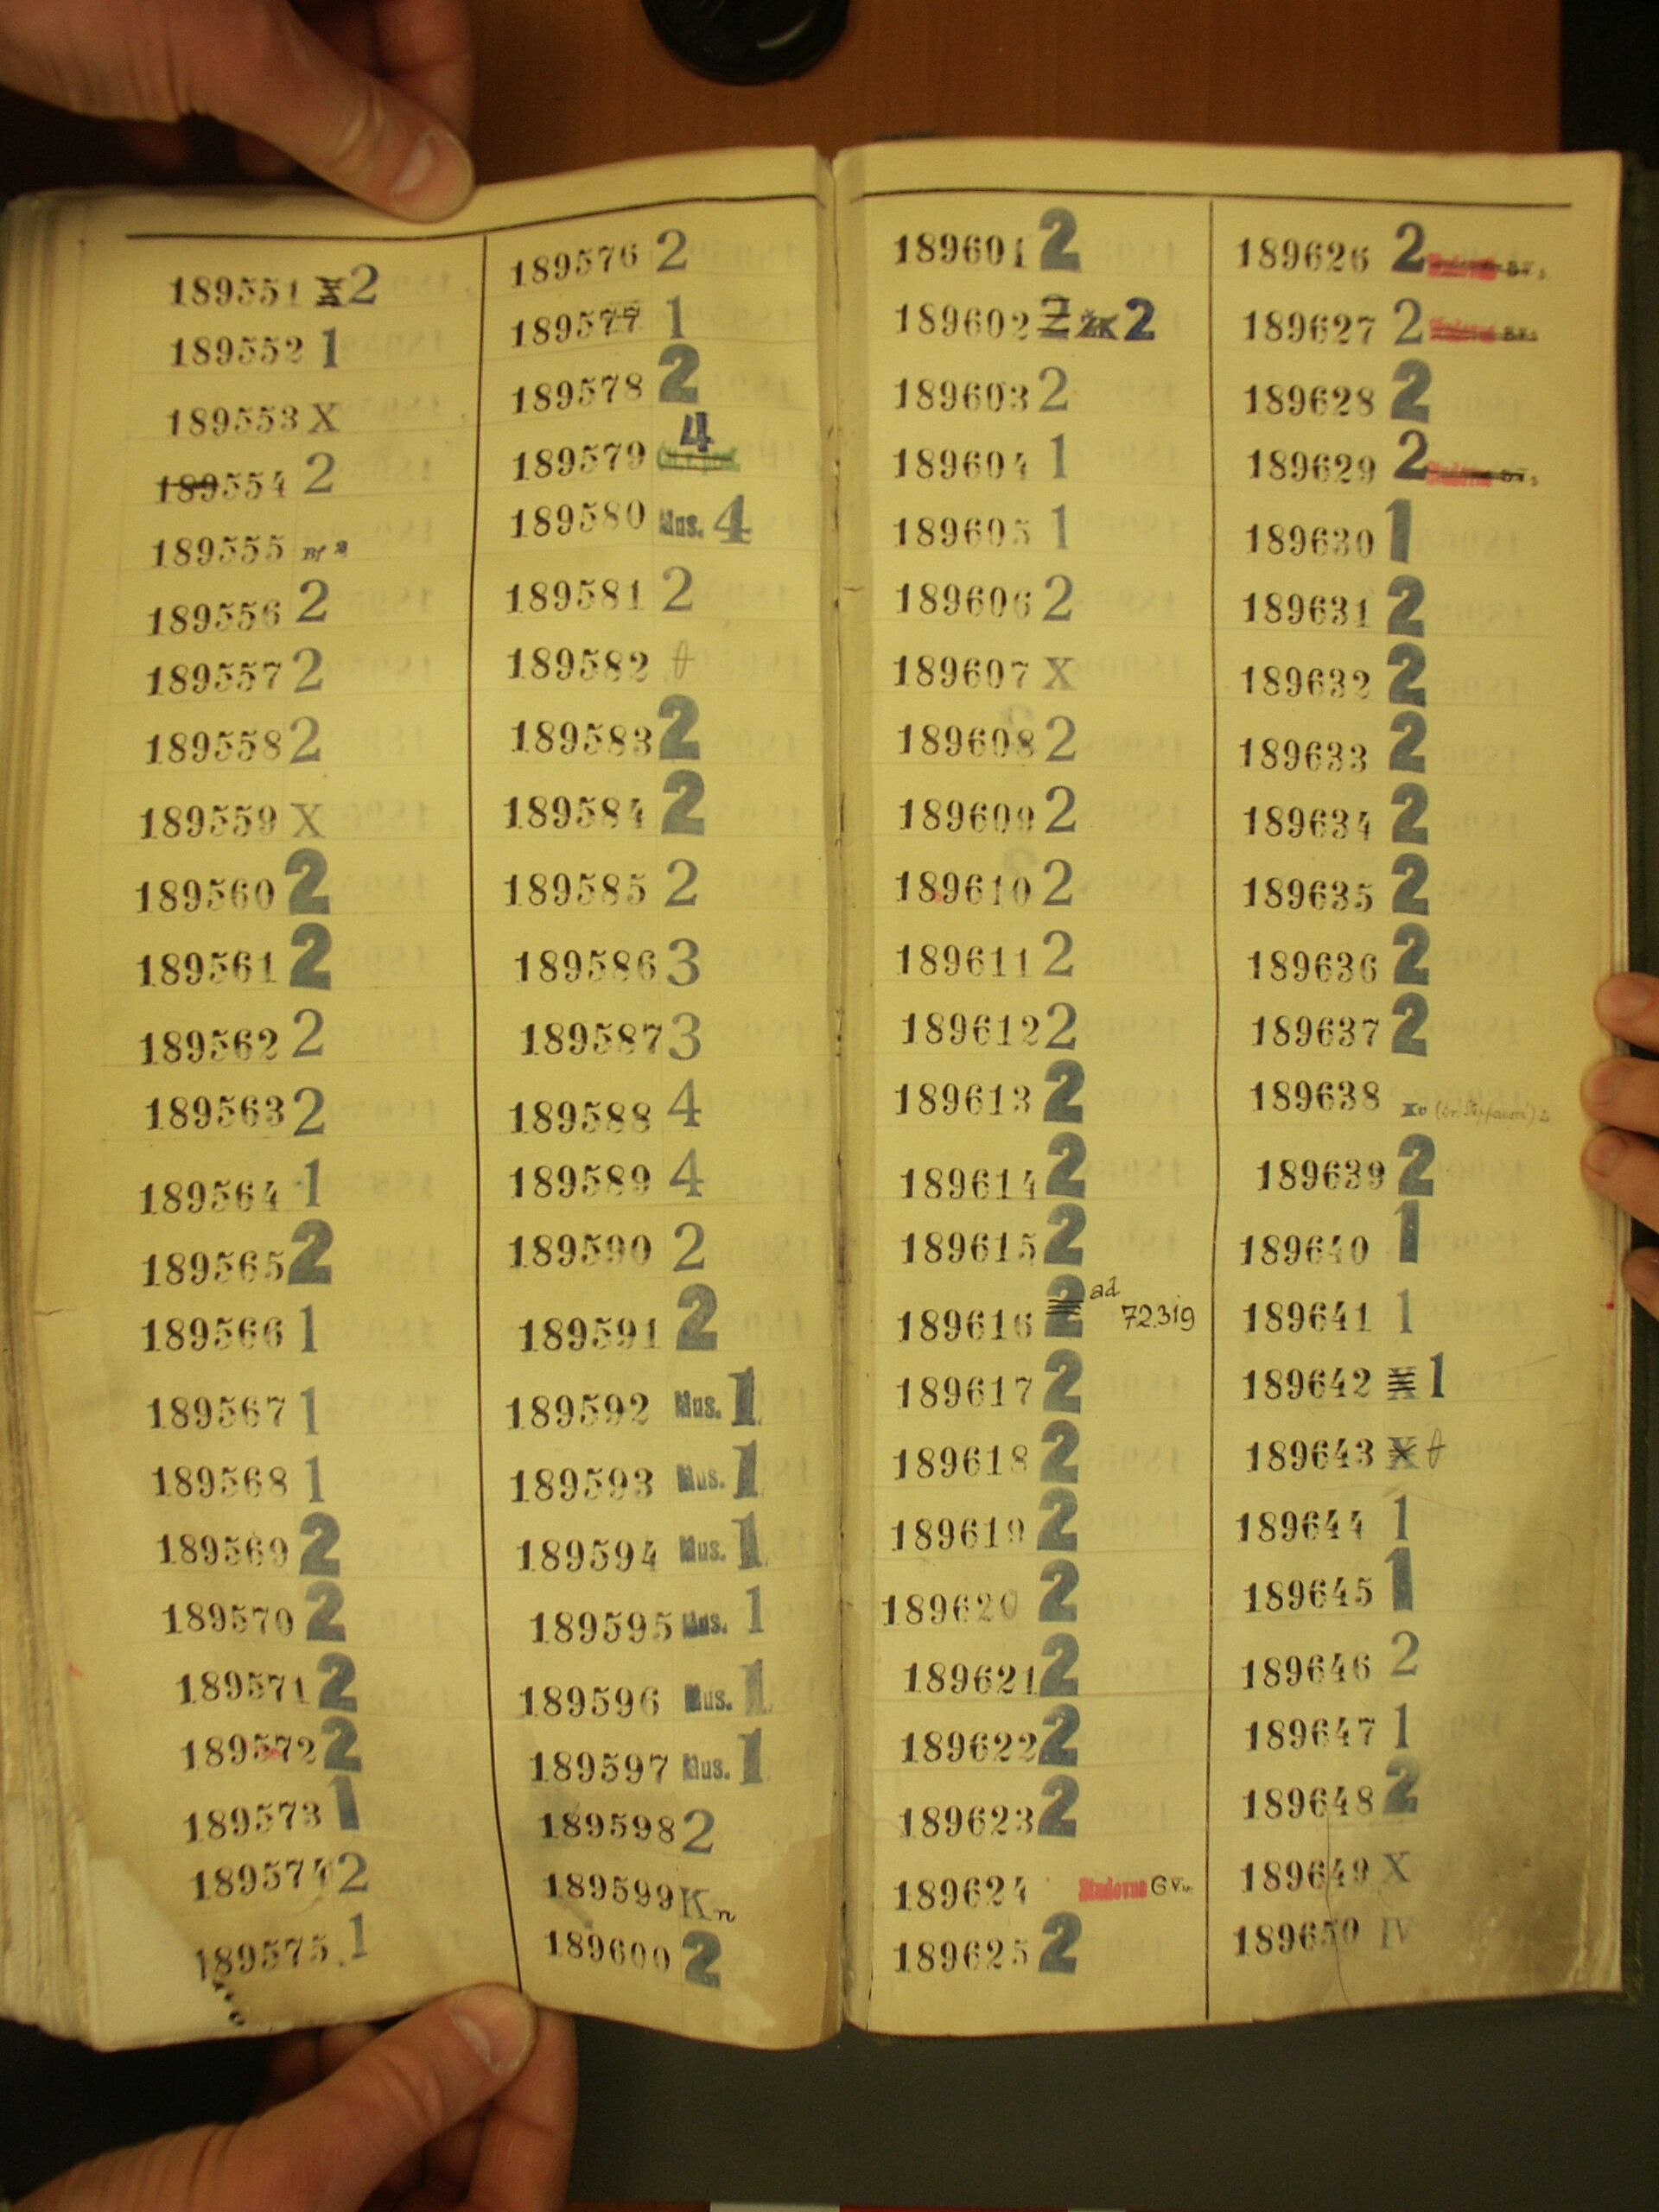 189551 X 2
189552 1
189553 X
189554 2
189555
189556 2
189557 2
189558 2
189559 X
189560 2
189561 2
189562 2
189563 2
189564 1
189565 2
189566 1
189567 1
189568 1
189569 2
189570 2
189571 2
189572 2
189573 1
189574 2
189575 1
189576 2
189577 1
189578 2
189579 4
189580 Mus. 4
189581 2
189582
189583 2
189584 2
189585 2
189586 3
189587 3
189588 4
189589 4
189590 2
189591 2
189592 Mus. 1
189593 Mus. 1
189594 Mus. 1
189595 Mus. 1
189596 Mus. 1
189597 Mus. 1
189598 2
189599 Kn
189600 2
189601 2
189602 2 ZK 2
189603 2
189604 1
189605 1
189606 2
189607 X
189608 2
189609 2
189610 2
189611 2
189612 2
189613 2
189614 2
189615 2
189616 2 ad 72.319
189617 2
189618 2
189619 2
189620 2
189621 2
189622 2
189623 2
189624 Studovna
189625 2
189626 2 Studovna
189627 2 Studovna
189628 2
189629 2 Studovna
189630 1
189631 2
189632 2
189633 2
189634 2
189635 2
189636 2
189637 2
189638
189639 2
189640 1
189641 1
189642 X 1
189643 X
189644 1
189645 1
189646 2
189647 1
189648 2
189649 X
189650 IV